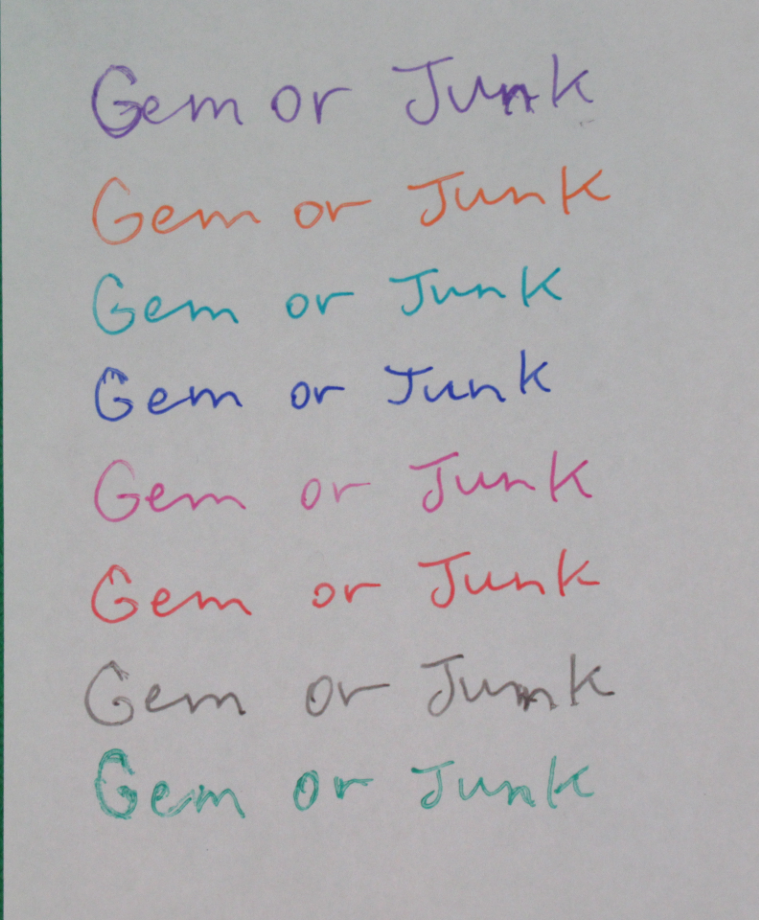 Gem or Junk
Gem or Junk
Gem or Junk
Gem or Junk
Gem or Junk
Gem or Junk
Gem or Junk
Gem or Junk